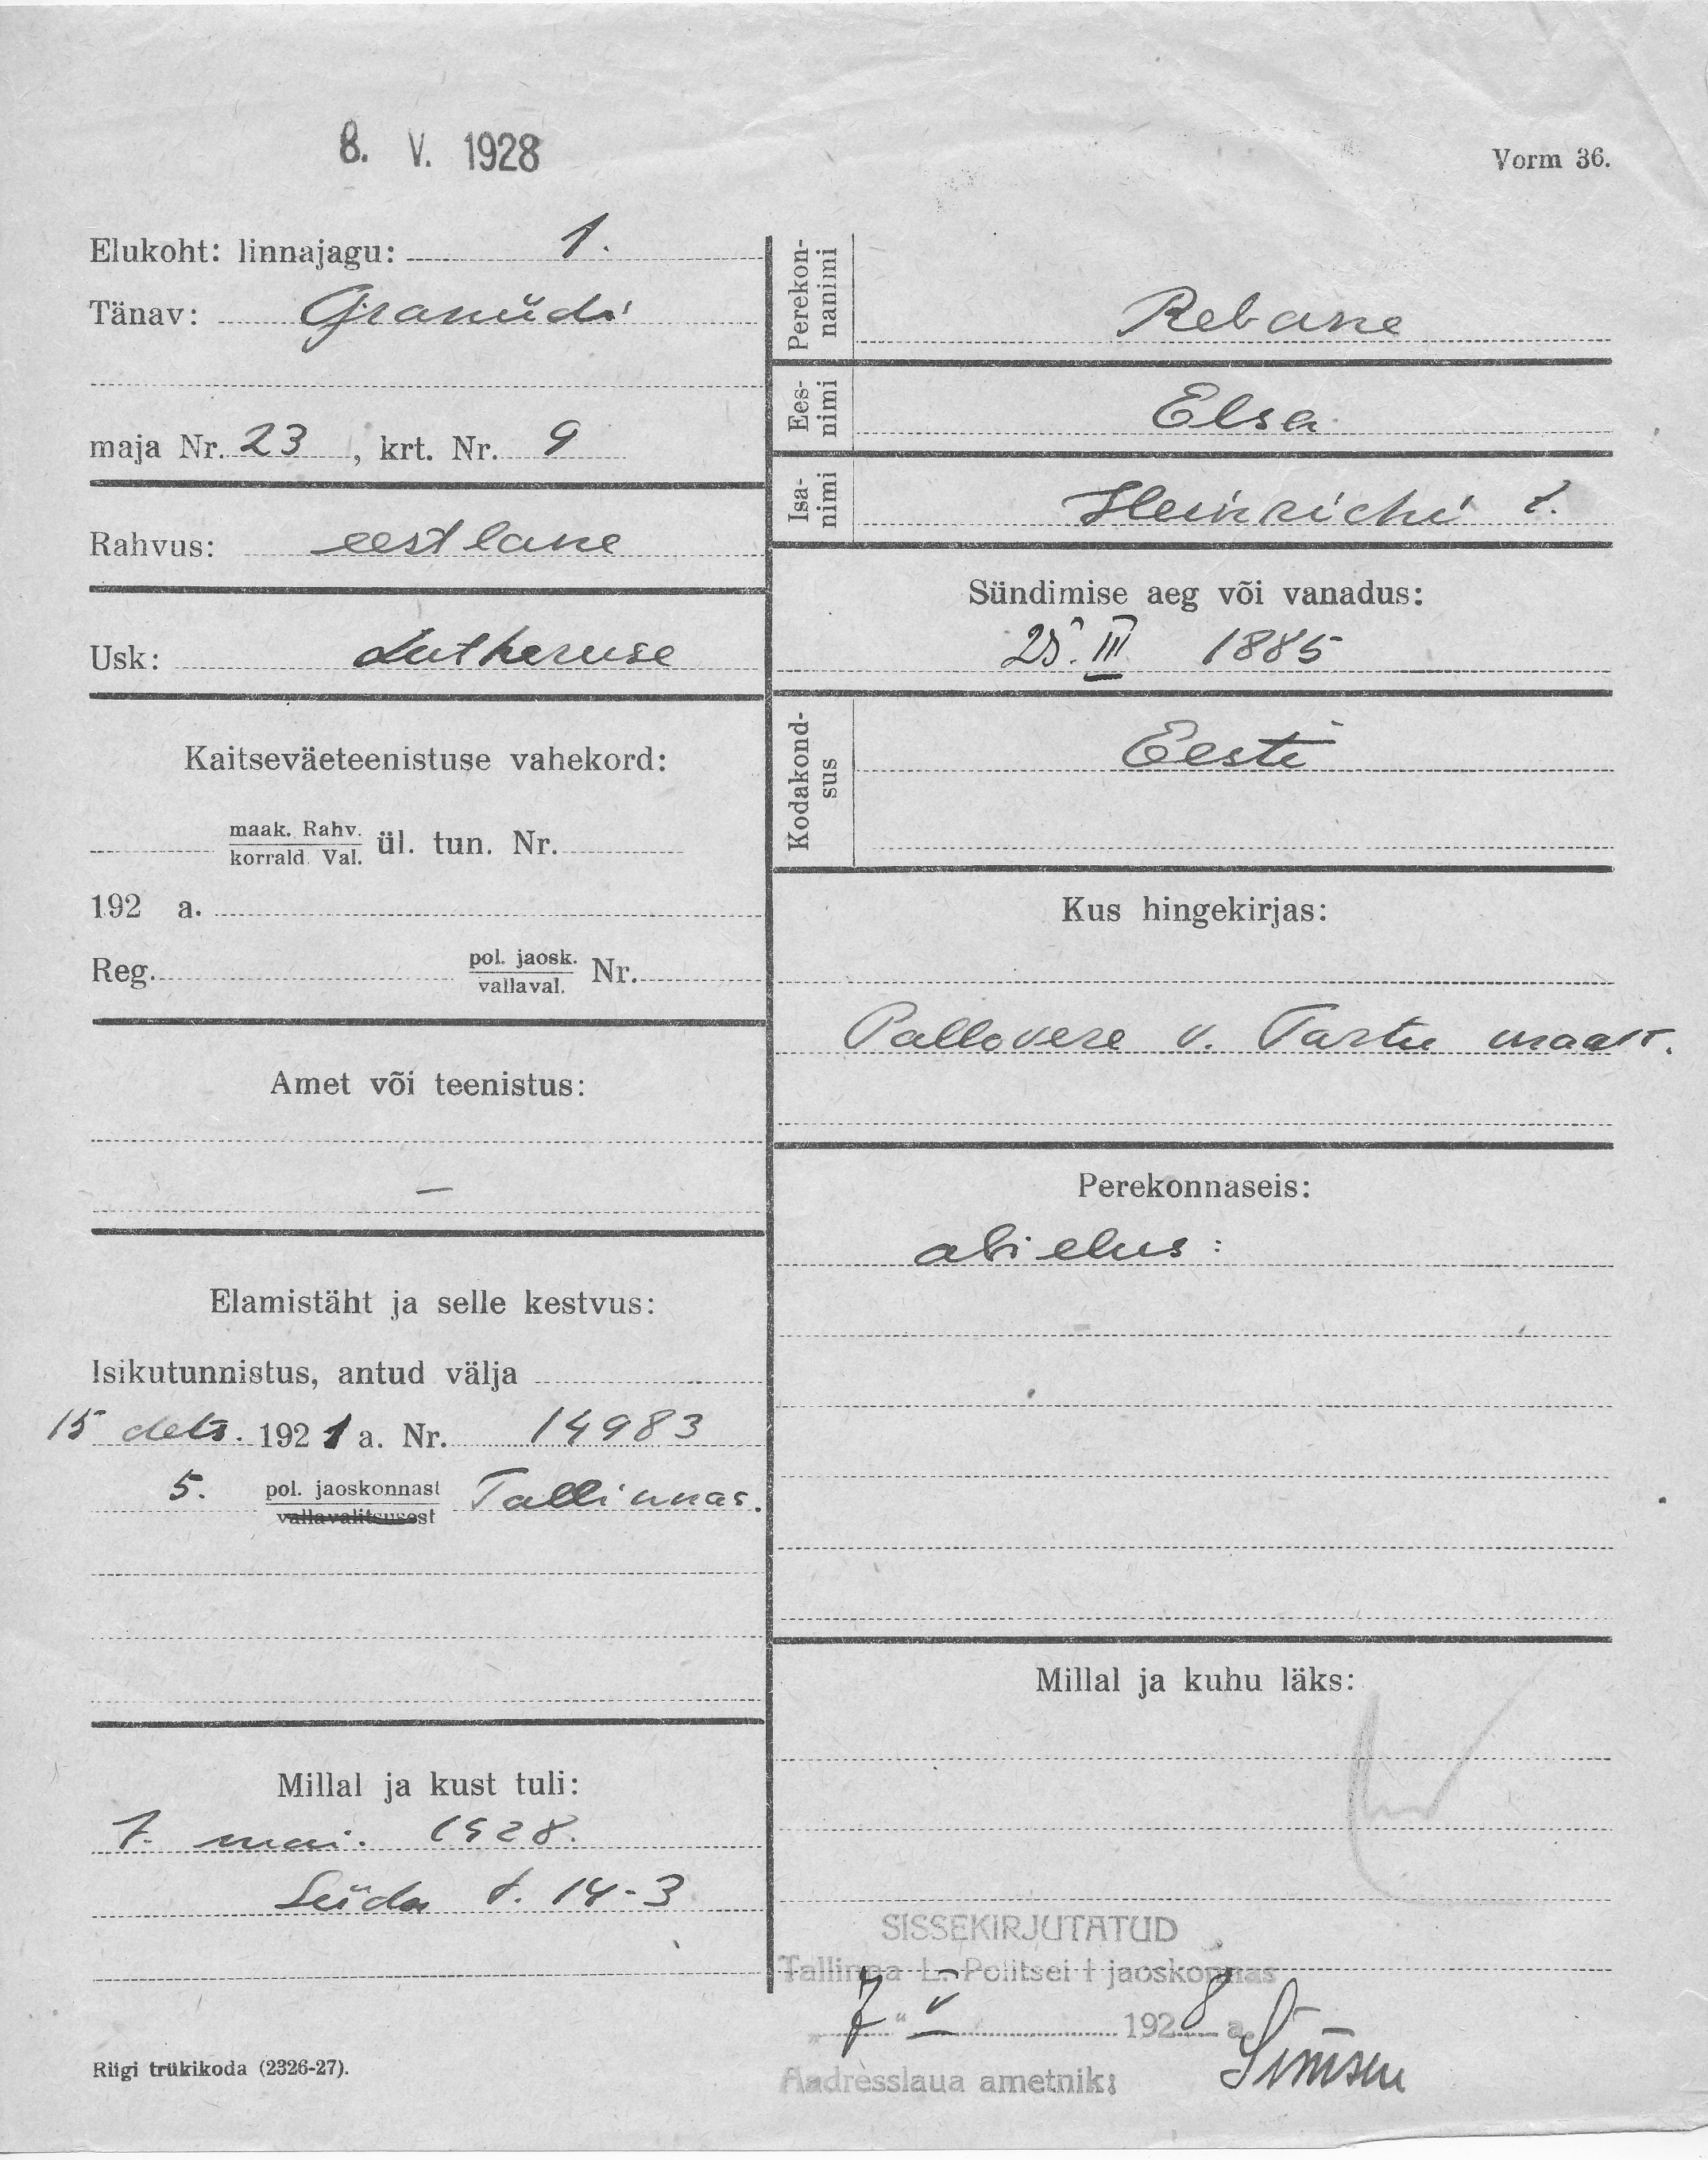 8. V. 1928
Vorm 36.
Elukoht: linnajagu: 1.
Tänav: Graniidi
maja Nr. 23, krt. Nr. 9
Rahvus: eestlane
Usk: Lutheruse
Kaitseväeteenistuse vahekord:
maak. Rahv.
korrald. Val. ül. tun. Nr.
192 a.
Reg. pol. jaosk. Nr.
vallaval.
Amet või teenistus:
—
Elamistäht ja selle kestvus:
Isikutunnistus, antud välja
15 dets. 1921 a. Nr. 14983
5. pol. jaoskonnast Tallinnas.
vallavalitsusest
Millal ja kust tuli:
7. mai. 1928.
t. 14-3
Riigi trükikoda (2326-27).
Perekon-
nanimi
Rebane
Ees-
nimi
Elsa
Isa-
nimi
Heinrichi t.
Sündimise aeg või vanadus:
25. III 1885
Kodakond-
sus
Eesti
Kus hingekirjas:
Pallovere v. Tartu maak.
Perekonnaseis:
abielus:
Millal ja kuhu läks:
SISSEKIRJUTATUD
Tallinna L. Politsei I jaoskonnas
„7“ V 1928 a.
Aadresslaua ametnik: